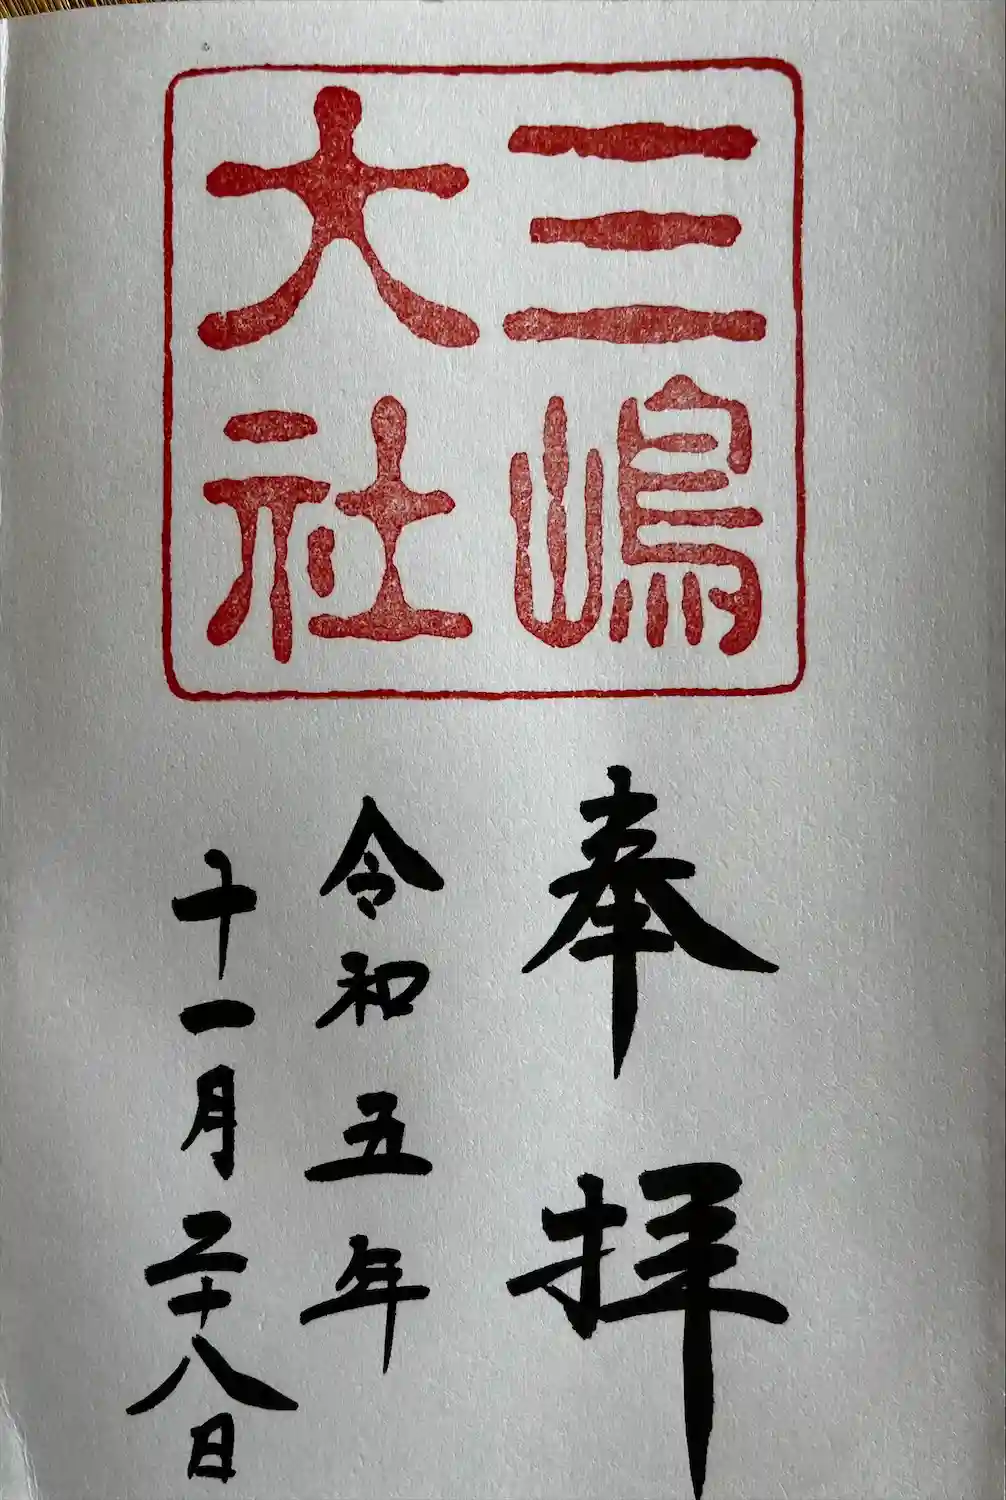 三嶋
大社
奉拝
令和五年
十一月二十八日